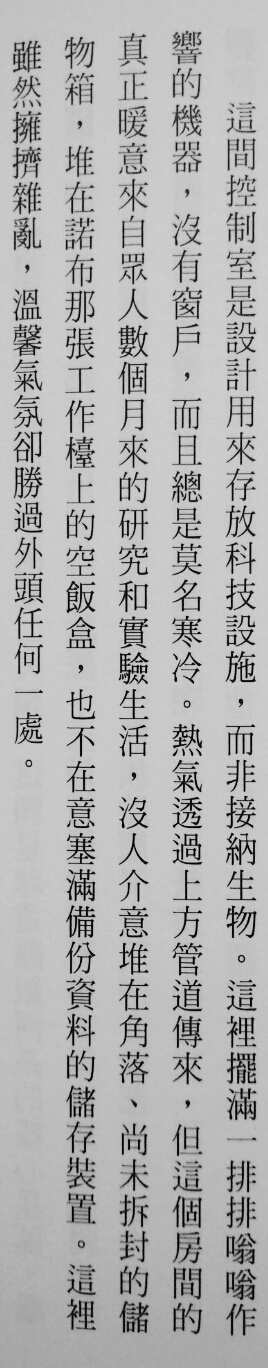 這間控制室是設計用來存放科技設施，而非接納生物。這裡擺滿一排排嗡嗡作
響的機器，沒有窗戶，而且總是莫名寒冷。熱氣透過上方管道傳來，但這個房間的
真正暖意來自眾人數個月來的研究和實驗生活，沒人介意堆在角落、尚未拆封的儲
物箱，堆在諾布那張工作檯上的空飯盒，也不在意塞滿備份資料的儲存裝置。這裡
雖然擁擠雜亂，溫馨氣氛卻勝過外頭任何一處。